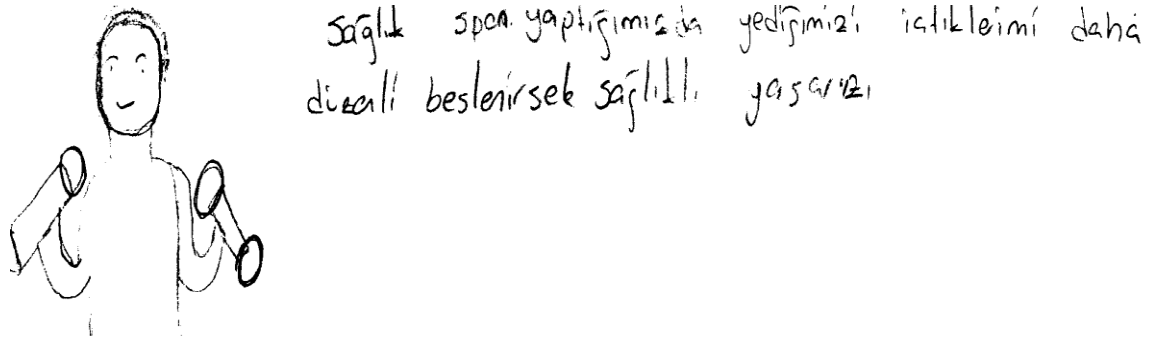 sağlık spor yaptığımızda yediğimizi içtiklerimi daha
düzenli beslenirsek sağlıklı yaşarız.